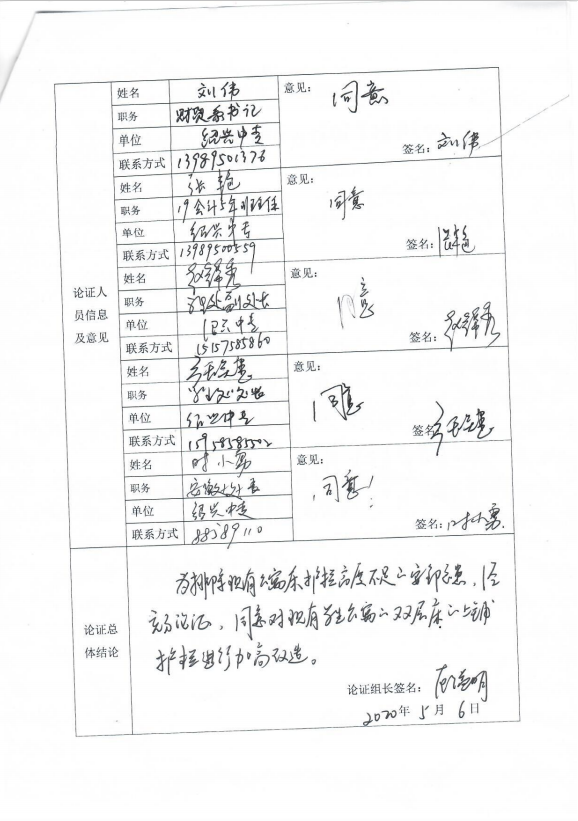 姓名 刘伟 意见： 同意
职务 财贸系书记
单位 绍兴中专 签名：刘伟
联系方式 13989501376
姓名 张艳 意见： 同意
职务 19会计5年班班主任
单位 绍兴中专 签名：张艳
联系方式 13989500559
姓名 意见： 同意
职务 副处长
单位 绍兴中专 签名：
联系方式 15157585860
姓名 意见： 同意
职务
单位 绍兴中专 签名：
联系方式 15958585502
姓名 时小勇 意见： 同意！
职务
单位 绍兴中专 签名：时小勇
联系方式 88589110
论证人
员信息
及意见
论证总
体结论
为排除现有公寓床护栏高度不足的安全隐患，经
充分论证，同意对现有学生公寓的双层床的上铺
护栏进行加高改造。
论证组长签名：
2020年5月6日